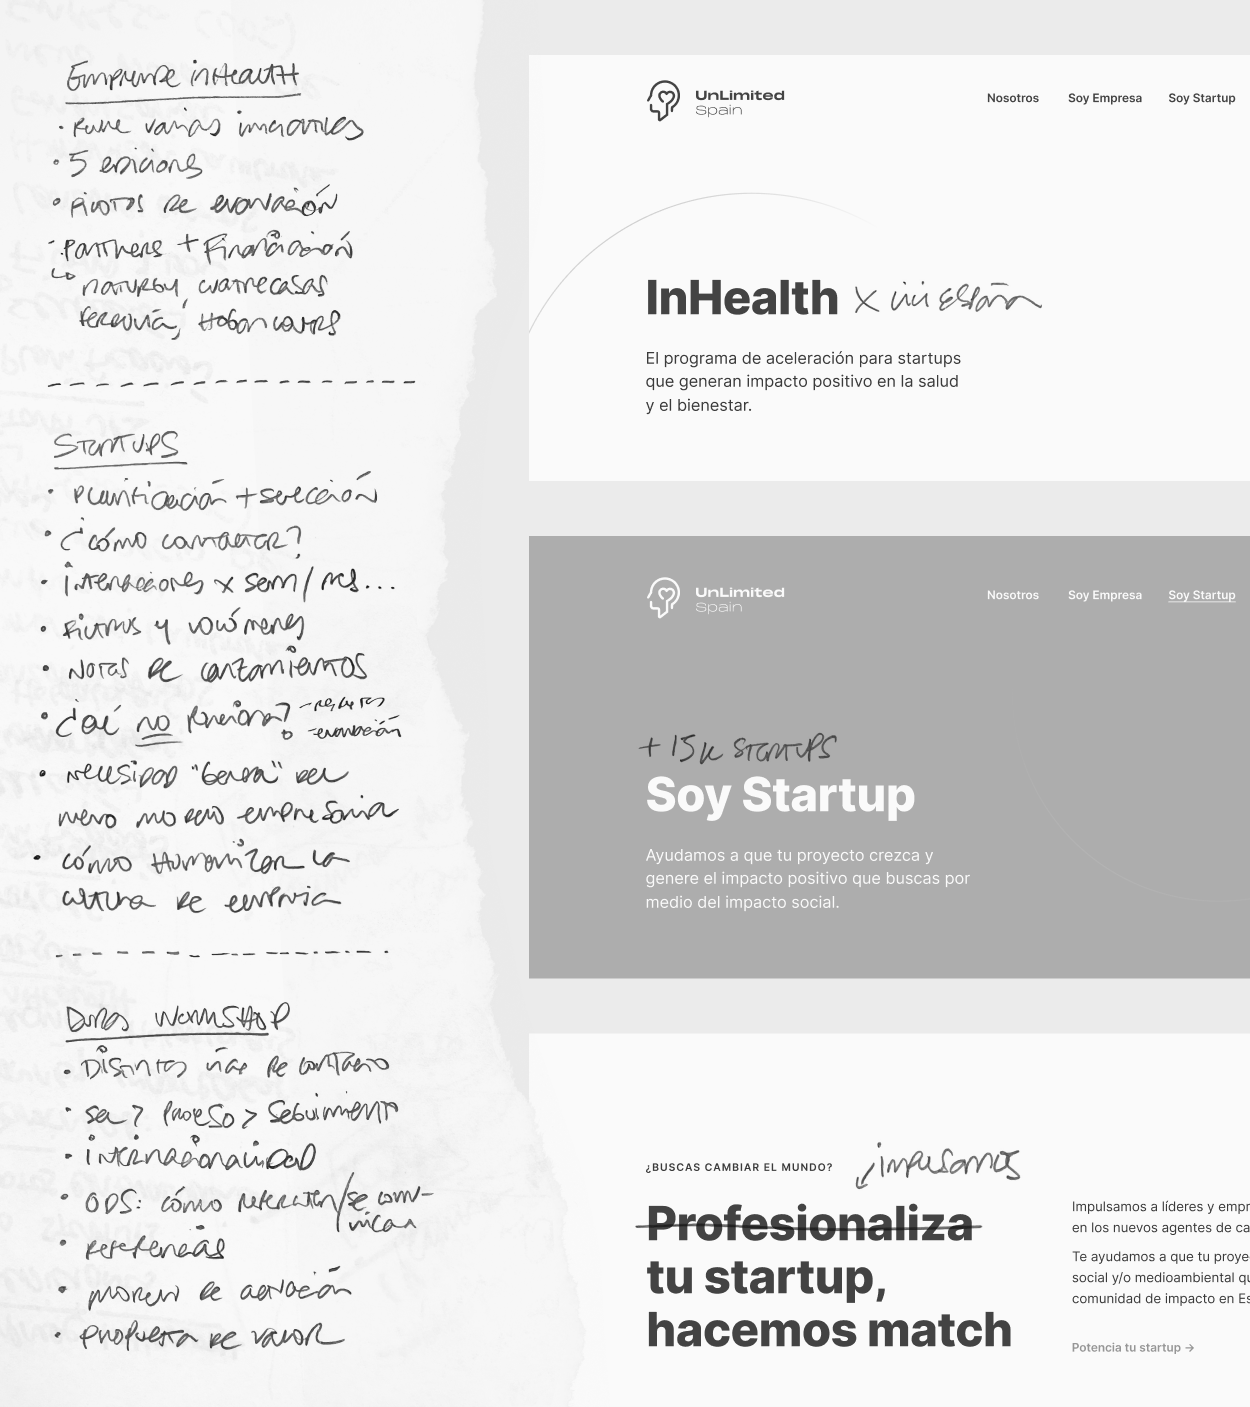 Emprende inHealth
· Reúne varias iniciativas
· 5 ediciones
· Pilotos de evaluación
· Partners + Financiación
↳ naturgy, cuatrecasas
ferrovial, Hogan Lovells
Startups
· Planificación + selección
· ¿cómo contactar?
· interacciones x sem/mes...
· Ritmos y volúmenes
· Notas de lanzamientos
· ¿Qué no funciona?
-evaluación
· necesidad "   " del
nuevo modelo empresarial
· cómo Humanizar la
cultura de empresa
Workshop
· Distintos   de contacto
·   ? Proceso > Seguimiento
· internacionalidad
· ODS: cómo   /se comu-
nican
· referencias
·   de actuación
· propuesta de valor
UnLimited
Spain
Nosotros Soy Empresa Soy Startup
InHealth x   España
El programa de aceleración para startups
que generan impacto positivo en la salud
y el bienestar.
UnLimited
Spain
Nosotros Soy Empresa Soy Startup
+ 15k startups
Soy Startup
Ayudamos a que tu proyecto crezca y
genere el impacto positivo que buscas por
medio del impacto social.
¿BUSCAS CAMBIAR EL MUNDO?
↙ impulsamos
Profesionaliza
tu startup,
hacemos match
Impulsamos a líderes y empr
en los nuevos agentes de ca
Te ayudamos a que tu proye
social y/o medioambiental qu
comunidad de impacto en Es
Potencia tu startup →